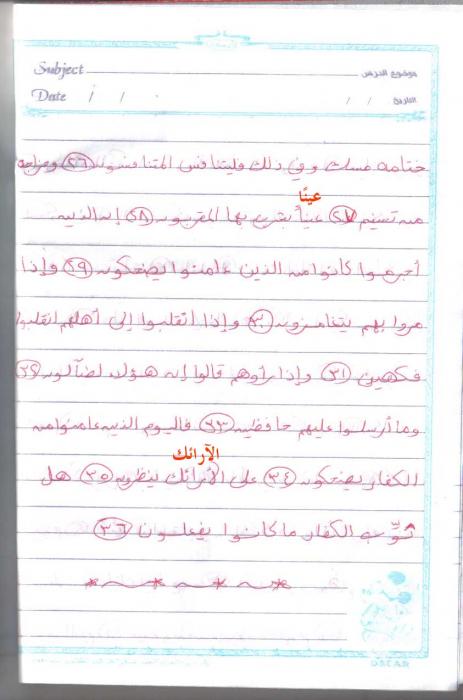 Subject موضوع الدرس
Date / / التاريخ / /
ختامه مسك وفي ذلك فليتنافس المتنافسون ٢٦ ومزاجه
عينًا
من تسنيم ٢٧ عيناً يشرب بها المقربون ٢٨ إن الذين
أجرموا كانوا من الذين ءامنوا يضحكون ٢٩ وإذا
مروا بهم يتغامزون ٣٠ وإذا انقلبوا إلى أهلهم انقلبوا
فكهين ٣١ وإذا رأوهم قالوا إن هؤلاء لضآلون ٣٢
وما أرسلوا عليهم حافظين ٣٣ فاليوم الذين ءامنوا من
الآرائك
الكفار يضحكون ٣٤ على الأرائك ينظرون ٣٥ هل
ثوِّب الكفار ما كانوا يفعلون ٣٦
OSCAR